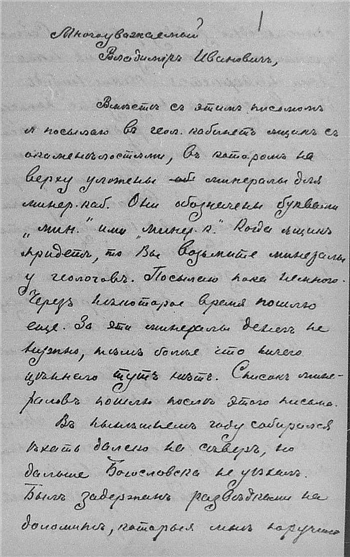 Многоуважаемый
Владиміръ Ивановичъ,
Вмѣстѣ съ этимъ письмомъ
я посылаю въ геол. кабинетъ ящикъ съ
окаменѣлостями, въ которомъ на
верху уложены минералы для
минер. каб. Они обозначены буквами
„мин.“ или „минер. к.“ Когда ящикъ
придетъ, то Вы возьмите минералы
у геологовъ. Посылаю пока немного.
Черезъ нѣкоторое время пошлю
еще. За эти минералы денегъ не
нужно, тѣмъ болѣе что ничего
цѣннаго тутъ нѣтъ. Списокъ мине-
раловъ пошлю послѣ этого письма.
Въ нынѣшнемъ году собирался
ѣхать далеко на сѣверъ, но
дальше Богословска не уѣхалъ.
Былъ задержанъ развѣдками на
доломитъ, которыя мнѣ поручило